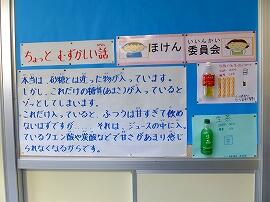 ちょっと むずかしい話
ほけん 委員会
いいんかい
本当は、砂糖とは違った物が入っています。
しかし、これだけの糖質(あまさ)が入っていると
ゾッとしてしまいます。
これだけ入っていると、ふつうは甘すぎて飲め
ないはずですが…… それは、ジュースの中に入っ
ているクエン酸や炭酸などで甘さがあまり感じ
られなくなるからです。